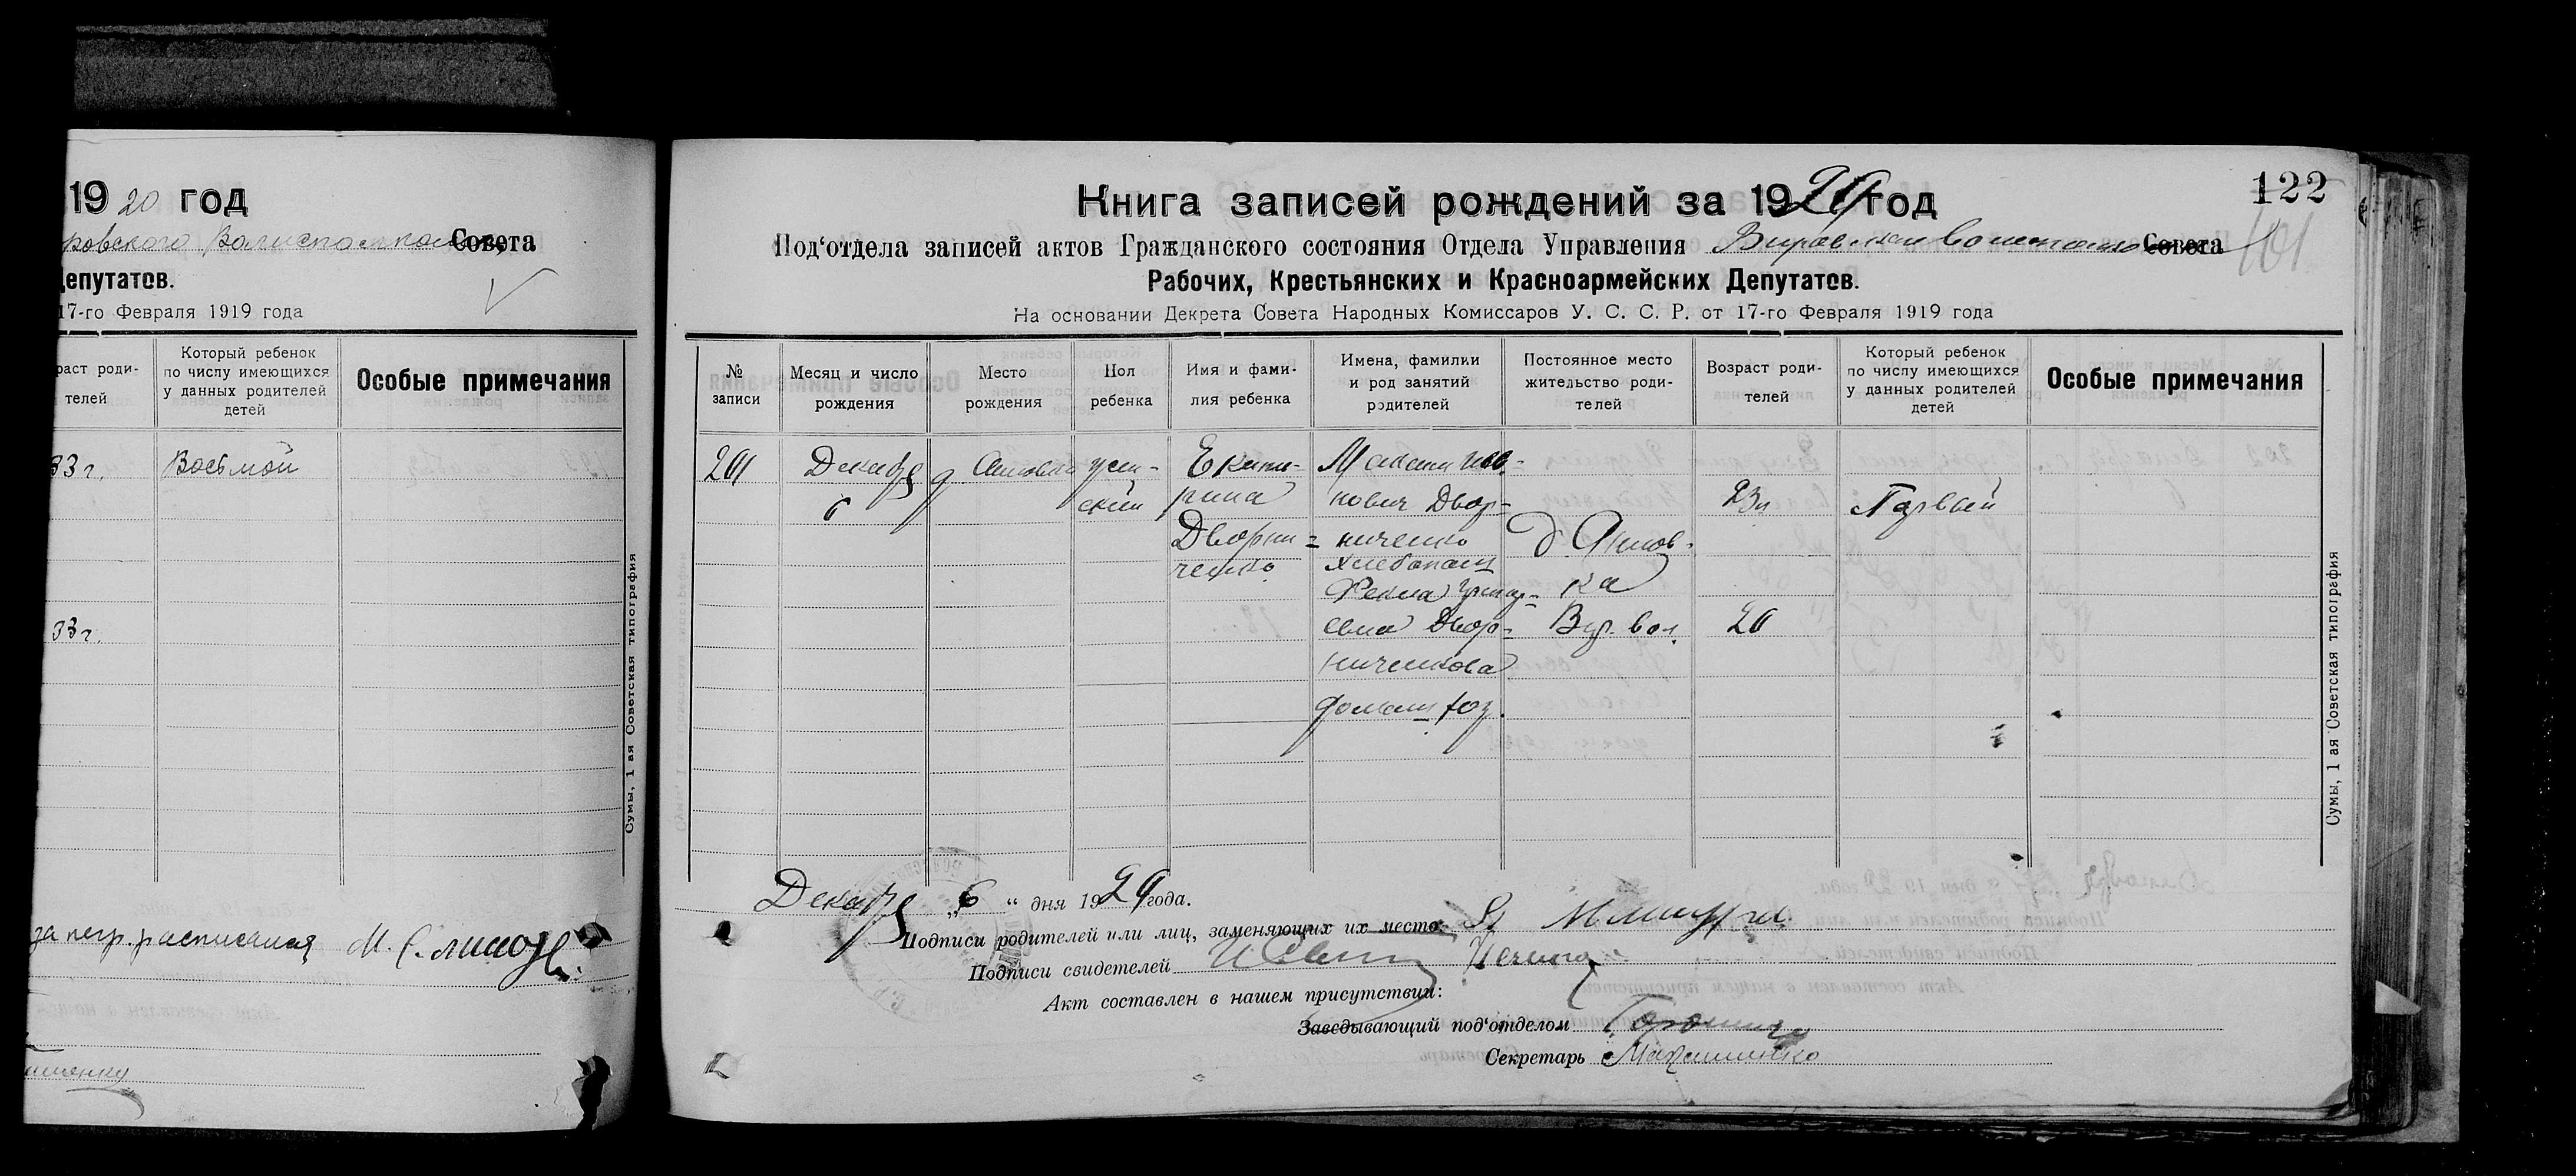 1920 год
Совета
Депутатов.
17-го Февраля 1919 года
раст роди-
телей
Который ребенок
по числу имеющихся
у данных родителей
детей
Особые примечания
33 г.
Восьмой
33 г.
Сумы, 1 ая Советская типография
122
101
Книга записей рождений за 1920 год
Под‘отдела записей актов Гражданского состояния Отдела Управления Совета
Рабочих, Крестьянских и Красноармейских Депутатов.
На основании Декрета Совета Народных Комиссаров У. С. С. Р. от 17-го Февраля 1919 года
№
записи
Месяц и число
рождения
Место
рождения
Пол
ребенка
Имя и фами-
лия ребенка
Имена, фамилии
и род занятий
родителей
Постоянное место
жительство роди-
телей
Возраст роди-
телей
Который ребенок
по числу имеющихся
у данных родителей
детей
Особые примечания
201
Декабр
6
д
жен-
ский
Екате-
рина
Дворни-
ченко
Максим
нович Двор-
ниченко
хлебопаш
Фекла Григор-
евна Двор-
ниченкова
домаш хоз.
д Яннов-
ка
Вир. вол.
23 г
20
Первый
Декабр „6“ дня 1920 года.
Подписи родителей или лиц, заменяющих их место:
Подписи свидетелей
Акт составлен в нашем присутствии:
Заведывающий под‘отделом
Секретарь
Сумы, 1 ая Советская типография